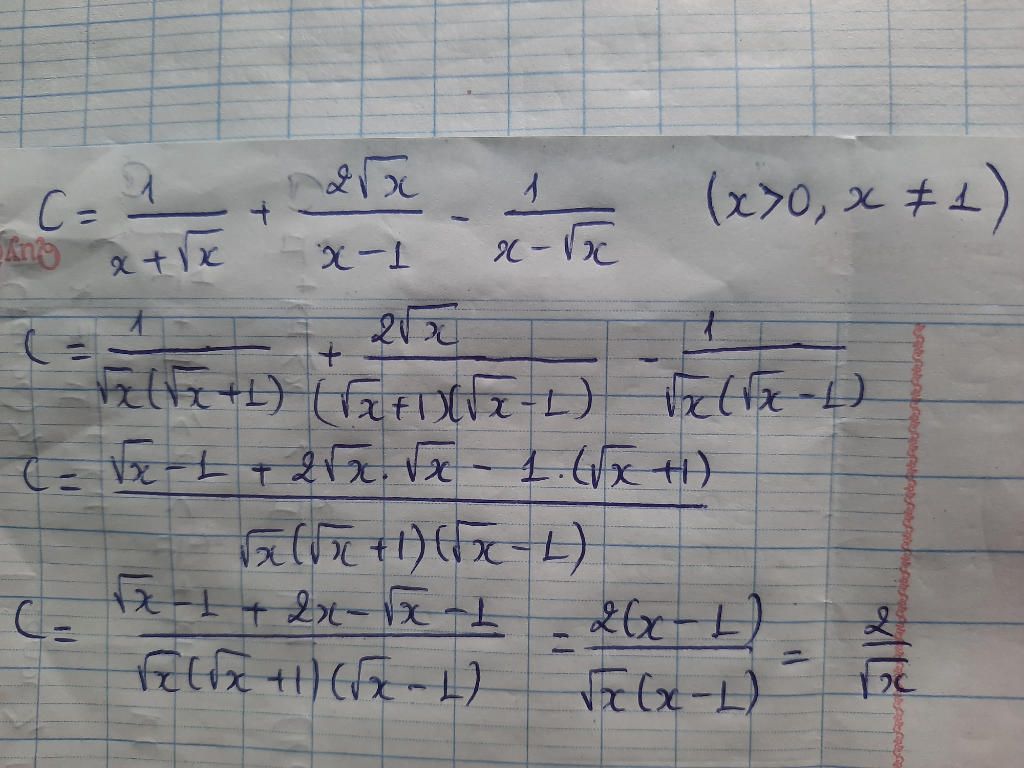 C = 1/(x+√x) + 2√x/(x-1) - 1/(x-√x) (x>0, x ≠ 1)
C = 1/(√x(√x+1)) + 2√x/((√x+1)(√x-1)) - 1/(√x(√x-1))
C = (√x-1 + 2√x.√x - 1.(√x+1))/(√x(√x+1)(√x-1))
C = (√x-1 + 2x-√x-1)/(√x(√x+1)(√x-1)) = 2(x-1)/(√x(x-1)) = 2/√x